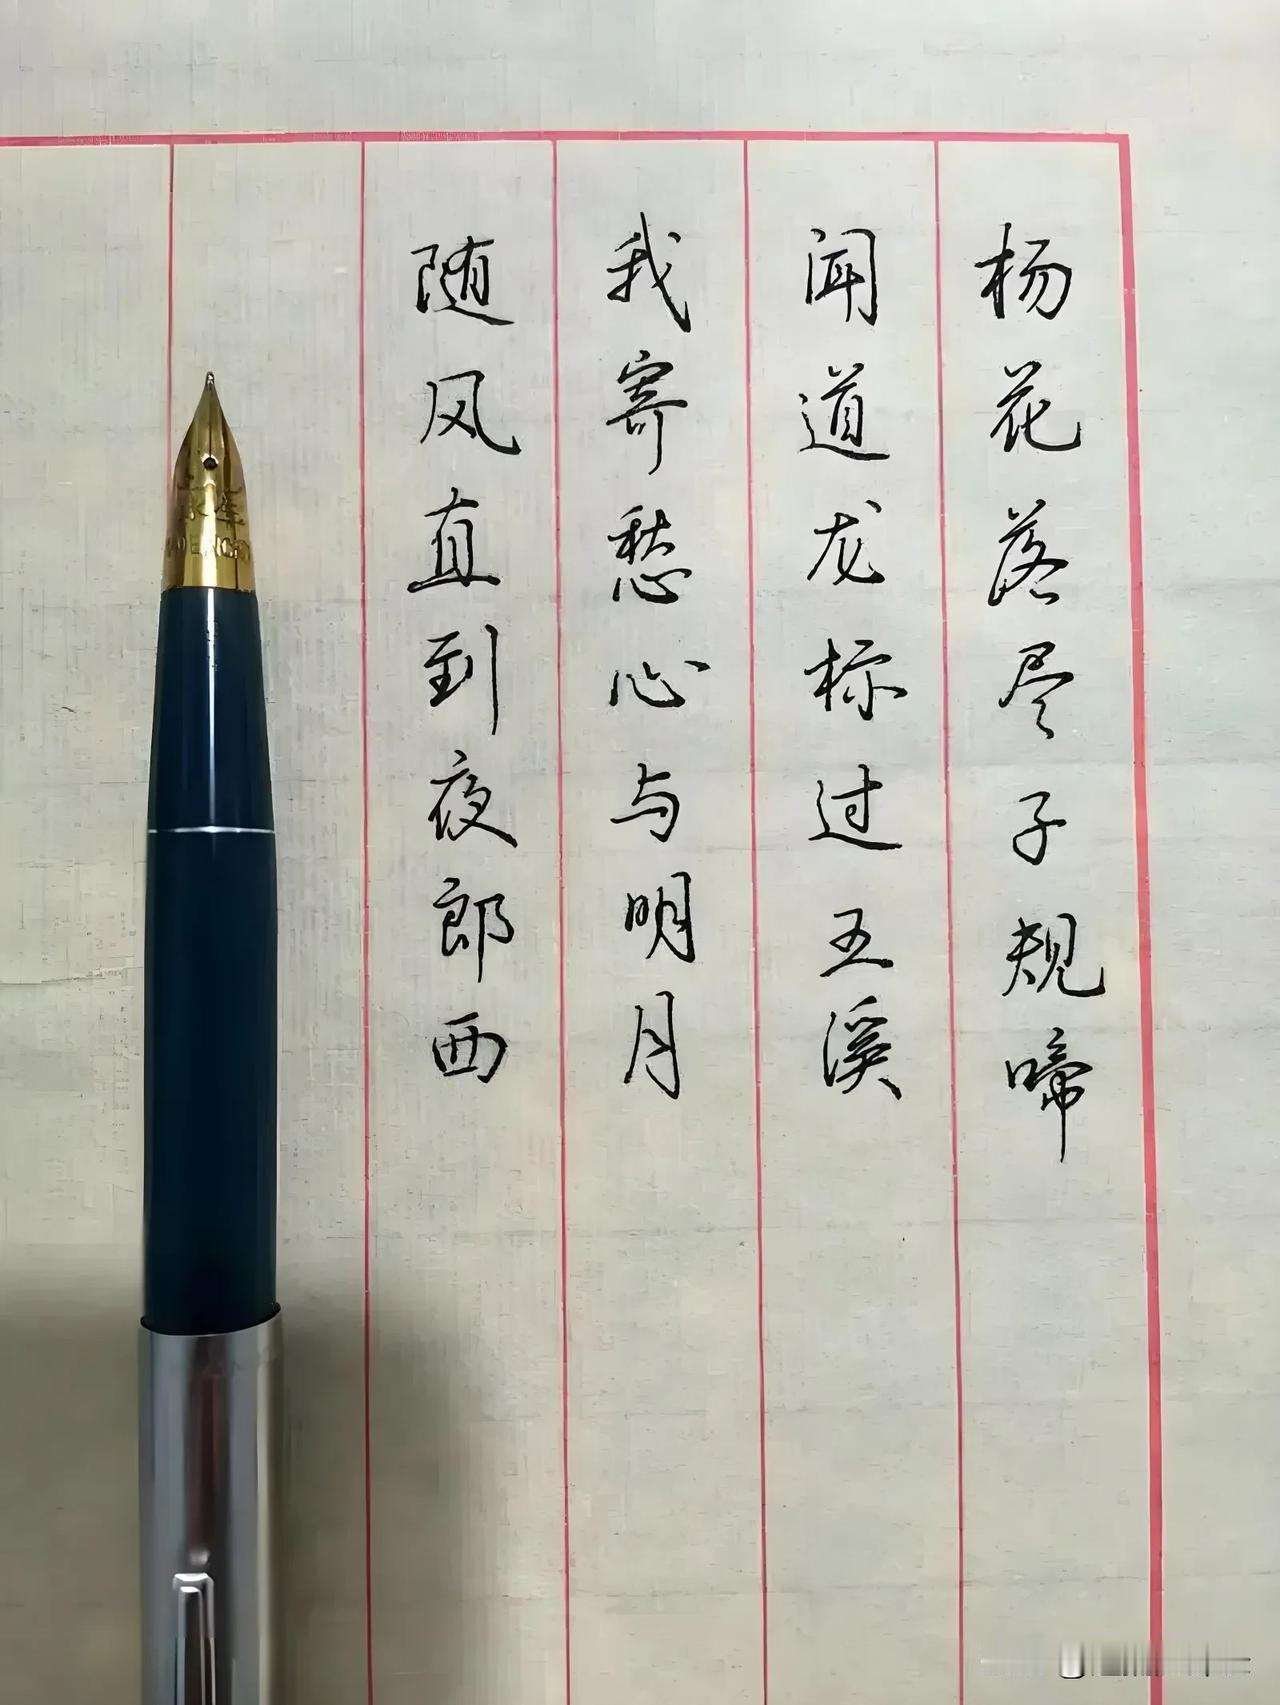 杨花落尽子规啼
闻道龙标过五溪
我寄愁心与明月
随风直到夜郎西